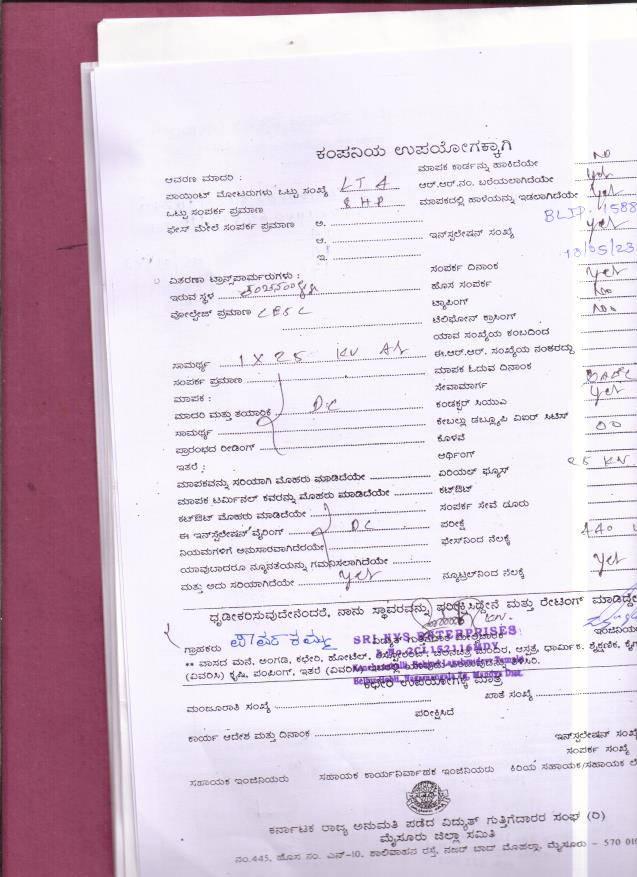 ಕಂಪನಿಯ ಉಪಯೋಗಕ್ಕಾಗಿ
ಆವರಣ ಮಾದರಿ :
ಮಾಪಕ ಕಾರ್ಡನ್ನು ಹಾಕಿದೆಯೇ NO
ಪಾಯಿಂಟ್ ಮೋಟರುಗಳು ಒಟ್ಟು ಸಂಖ್ಯೆ LT 4
ಆರ್.ಆರ್.ನಂ. ಬರೆಯಲಾಗಿದೆಯೇ Yes
ಒಟ್ಟು ಸಂಪರ್ಕ ಪ್ರಮಾಣ 8 HP
ಮಾಪಕದಲ್ಲಿ ಹಾಳೆಯನ್ನು ಇಡಲಾಗಿದೆಯೇ Yes
ಫೇಸ್ ಮೇಲೆ ಸಂಪರ್ಕ ಪ್ರಮಾಣ ಅ.
BLIP-1588
ಆ.
ಇನ್ಸ್ಟಲೇಷನ್ ಸಂಖ್ಯೆ Yes
ಇ.
18/05/23
ವಿತರಣಾ ಟ್ರಾನ್ಸ್‌ಪಾರ್ಮರುಗಳು :
ಸಂಪರ್ಕ ದಿನಾಂಕ Yes
ಇರುವ ಸ್ಥಳ
ಹೊಸ ಸಂಪರ್ಕ No
ವೋಲ್ಟೇಜ್ ಪ್ರಮಾಣ CESC
ಟ್ಯಾಪಿಂಗ್ No
ಟೆಲಿಫೋನ್ ಕ್ರಾಸಿಂಗ್
ಯಾವ ಸಂಖ್ಯೆಯ ಕಂಬದಿಂದ
ಸಾಮರ್ಥ್ಯ 1 X 25 KV
ಈ.ಆರ್.ಆರ್. ಸಂಖ್ಯೆಯ ನಂತರದ್ದು
ಸಂಪರ್ಕ ಪ್ರಮಾಣ
ಮಾಪಕ ಓದುವ ದಿನಾಂಕ
ಮಾಪಕ :
ಸೇವಾಮಾರ್ಗ
ಮಾದರಿ ಮತ್ತು ತಯಾರಿಕೆ DC
ಕಂಡಕ್ಟರ್ ಸಿಯುಎ Yes
ಸಾಮರ್ಥ್ಯ
ಕೇಬಲ್ಲು ಡಬ್ಲ್ಯೂಪಿ ವಿಐರ್ ಸಿಟಿಸ್
ಪ್ರಾರಂಭದ ರೀಡಿಂಗ್
ಕೊಳವೆ 00
ಇತರೆ :
ಅರ್ಥಿಂಗ್
ಮಾಪಕವನ್ನು ಸರಿಯಾಗಿ ಮೊಹರು ಮಾಡಿದೆಯೇ
ಏರಿಯಲ್ ಫ್ಯೂಸ್ 25 KV
ಮಾಪಕ ಟರ್ಮಿನಲ್ ಕವರನ್ನು ಮೊಹರು ಮಾಡಿದೆಯೇ
ಕಟ್‌ಔಟ್
ಕಟ್‌ಔಟ್ ಮೊಹರು ಮಾಡಿದೆಯೇ
ಸಂಪರ್ಕ ಸೇವೆ ದೂರು
ಈ ಇನ್‌ಸ್ಟಲೇಷನ್ ವೈರಿಂಗ್ DC
ಪರೀಕ್ಷೆ
ನಿಯಮಗಳಿಗೆ ಅನುಸಾರವಾಗಿದೆರಯೇ
ಫೇಸ್‌ನಿಂದ ನೆಲಕ್ಕೆ 440
ಯಾವುದಾದರೂ ನ್ಯೂನತೆಯನ್ನು ಗಮನಿಸಲಾಗಿದೆಯೇ
ಮತ್ತು ಅದು ಸರಿಯಾಗಿದೆಯೇ Yes
ನ್ಯೂಟ್ರಲ್‌ನಿಂದ ನೆಲಕ್ಕೆ Yes
ಧೃಡೀಕರಿಸುವುದೇನೆಂದರೆ, ನಾನು ಸ್ಥಾವರವನ್ನು ಪರೀಕ್ಷಿಸಿದ್ದೇನೆ ಮತ್ತು ರೇಟಿಂಗ್ ಮಾಡಿದ್ದೇ
ಗ್ರಾಹಕರು
SRI NVS ENTERPRISES
ವಿದ್ಯುತ್ ಗುತ್ತಿಗೆದಾರ
ಇಂಜಿನಿಯ
** ವಾಸದ ಮನೆ, ಅಂಗಡಿ, ಕಛೇರಿ, ಹೋಟೆಲ್,
ಆಸ್ಪತ್ರೆ, ಧಾರ್ಮಿಕ, ಶೈಕ್ಷಣಿಕ, ಕೈಗ
(ವಿವರಿಸಿ) ಕೃಷಿ, ಪಂಪಿಂಗ್, ಇತರೆ (ವಿವರಿಸಿ)
ಕಛೇರಿ ಉಪಯೋಗಕ್ಕೆ ಮಾತ್ರ
ಮಂಜೂರಾತಿ ಸಂಖ್ಯೆ
ಖಾತೆ ಸಂಖ್ಯೆ
ಪರೀಕ್ಷಿಸಿದೆ
ಕಾರ್ಯ ಆದೇಶ ಮತ್ತು ದಿನಾಂಕ
ಇನ್‌ಸ್ಟಲೇಷನ್ ಸಂಖ್ಯೆ
ಸಂಪರ್ಕ ಸಂಖ್ಯೆ
ಸಹಾಯಕ ಇಂಜಿನಿಯರು ಸಹಾಯಕ ಕಾರ್ಯನಿರ್ವಾಹಕ ಇಂಜಿನಿಯರು ಕಿರಿಯ ಸಹಾಯಕ/ಸಹಾಯಕ ಲೆ
ಕರ್ನಾಟಕ ರಾಜ್ಯ ಅನುಮತಿ ಪಡೆದ ವಿದ್ಯುತ್ ಗುತ್ತಿಗೆದಾರರ ಸಂಘ (ರಿ)
ಮೈಸೂರು ಜಿಲ್ಲಾ ಸಮಿತಿ
ನಂ.445, ಹೊಸ ನಂ. ಎನ್-10, ಶಾಲಿವಾಹನ ರಸ್ತೆ, ನಜರ್ ಬಾದ್ ಮೊಹಲ್ಲಾ, ಮೈಸೂರು - 570 010